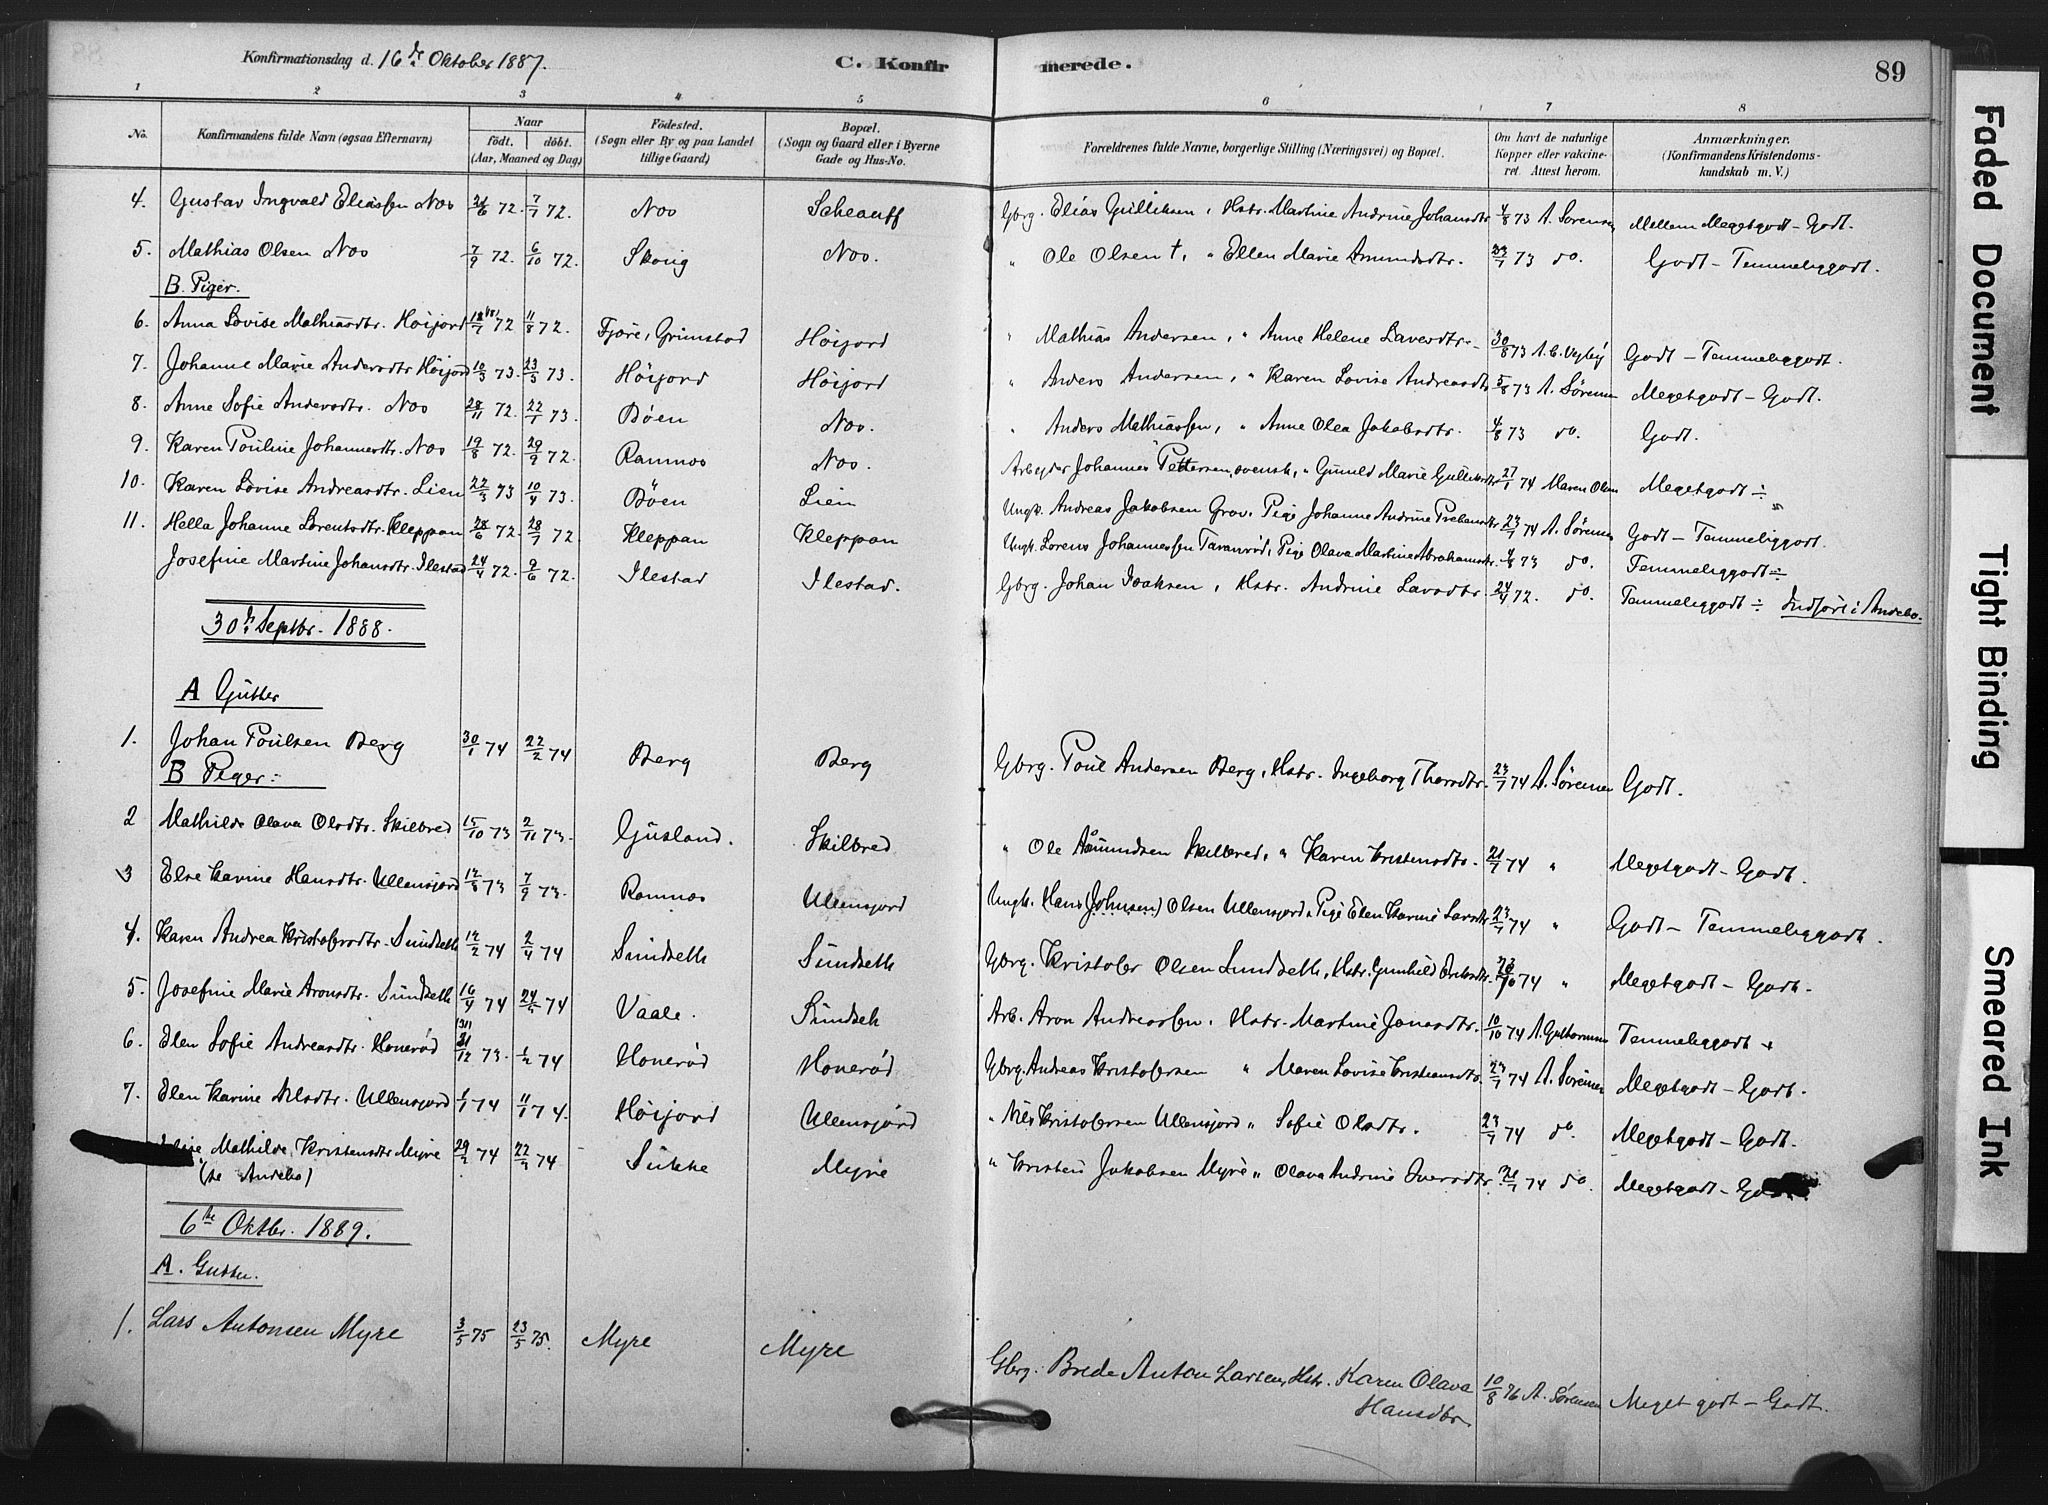 Konfirmationsdag d. 16de Oktober 1887.
C. Konfirmerede.
89
1 2 3 4 5 6 7 8
No.
Konfirmandens fulde Navn (ogsaa Efternavn)
Naar
födt. döbt.
(Aar, Maaned og Dag)
Födested.
(Sogn eller By og paa Landet tillige Gaard)
Bopæl.
(Sogn og Gaard eller i Byerne Gade og Hus-No.
Forældrenes fulde Navne, borgerlige Stilling (Næringsvei) og Bopæl.
Om havt de naturlige Kopper eller vakcineret. Attest herom.
Anmærkninger.
(Konfirmandens Kristendomskundskab m. V.)
4. Gustav Ingvald Eliassen Nos 21/6 72. 7/7 72. Nos Scheauff Gbrg. Elias Gulliksen, Hstr. Martine Andrine Johansdtr 4/8 73 A. Sørensen Mellem Megetgodt - Godt.
5. Mathias Olsen Nos 7/9 72. 6/10 72. Skorig Nos. " Ole Olsen †, " Ellen Marie Amundsdtr. 23/7 73 do. Godt - Temmeliggodt.
B. Piger.
6. Anna Lovise Mathiasdtr. Höijord 18/7 72 11/8 72. Fjöre, Grimstad Höijord " Mathias Andersen, " Anne Helene Lavesdtr. 30/8 73 A. C. Vegby Godt - Temmeliggodt.
7. Johanne Marie Andersdtr Höijord 10/3 73. 23/3 73. Höijord Höijord " Anders Andersen, " Karen Lovise Andreasdtr 5/8 73 A. Sörensen Megetgodt - Godt.
8. Anne Sofie Andersdtr. Nos 28/11 72. 22/1 73. Böen Nos. " Anders Mathiassen, " Anne Olea Jakobsdtr. 4/8 73 do. Godt.
9. Karen Pouline Johannesdtr. Nos 19/8 72. 29/9 72. Ramnos Nos. Arbejder Johannes Pettersen, svensk, " Gunild Marie Gulliksdtr 27/1 74 Maren Olsen Megetgodt ÷
10. Karen Lovise Andreasdtr. Lien 22/3 73 10/4 73. Böen Lien Ungk. Andreas Jakobsen Grav. Pige Johanne Andrine Prebensdtr 23/7 74 A. Sörensen Godt - Temmeliggodt.
11. Hella Johanne Lorentsdtr. Kleppan 28/6 72. 28/7 72 Kleppan Kleppan Ungk. Lorens Johannessen Taranröd, Pige Olava Martine Abrahamsdtr. 4/8 73 do. Temmeliggodt ÷
Josefine Martine Johansdtr. Ilestad 24/4 72. 9/6 72. Ilestad Ilestad. Gbrg. Johan Isaksen, Hstr. Andrine Larsdtr. 24/4 72. do. Temmeliggodt ÷ Indfört i Andebo.
30te Septbr. 1888.
A Gutter
1. Johan Poulsen Berg 30/1 74 22/2 74 Berg Berg Gbrg. Poul Andersen Berg, Hstr. Ingeborg Thorsdtr. 23/7 74 A. Sörensen Godt.
B Piger:
2 Mathilde Olava Olsdtr. Skilbred 15/10 73 2/11 73. Gusland. Skilbred " Ole Aamundsen Skilbred, " Karen Kristensdtr. 21/7 74 " Megetgodt - Godt.
3 Else Karine Hansdtr. Ullensjord 12/8 73 7/9 73. Ramnos Ullensjord Ungk. Hans (Johnsen) Olsen Ullensjord, Pige Elen Karine Larsdtr 23/7 74 " Godt - Temmeliggodt.
4. Karen Andrea Kristofersdtr. Sundseth 12/2 74 2/4 74 Sundseth Sundseth Gbrg. Kristofer Olsen Sundseth, Hstr. Gunhild Eriksdtr. 74 " Megetgodt - Godt.
5. Josefine Marie Aronsdtr. Sundseth 16/4 74 24/5 74 Vaale. Sundseth Arb. Aron Andreassen. Hstr. Martine Jonasdtr. 10/10 74 A. Guttormsen Temmeliggodt +
6. Elen Sofie Andreasdtr. Honeröd 31/12 73. 1/2 74 Honeröd Honeröd Gbrg. Andreas Kristofersen " Maren Lovise Kristiansdtr. 23/7 74 A. Sörensen Megetgodt - Godt.
7. Elen Karine Nilsdtr. Ullensjord 1/1 74 11/1 74. Höijord Ullensjörd " Nils Kristofersen Ullensjord " Sofie Olsdtr. 23/7 74 do. Megetgodt - Godt.
Mathilde Kristensdtr Myre 29/2 74 22/3 74 Sukke Myre " Kristen Jakobsen Myre " Olava Andrine Iversdtr. 21/7 74 do. Megetgodt -
(se Andebo)
6te Oktbr. 1889.
A. Gutter.
1. Lars Antonsen Myre 3/5 75 23/5 75. Myre Myre Gbrg. Brede Anton Larsen, Hstr. Karen Olava Hansdtr 10/8 76 A. Sørensen Meget godt - Godt.
Faded Document
Tight Binding
Smeared Ink